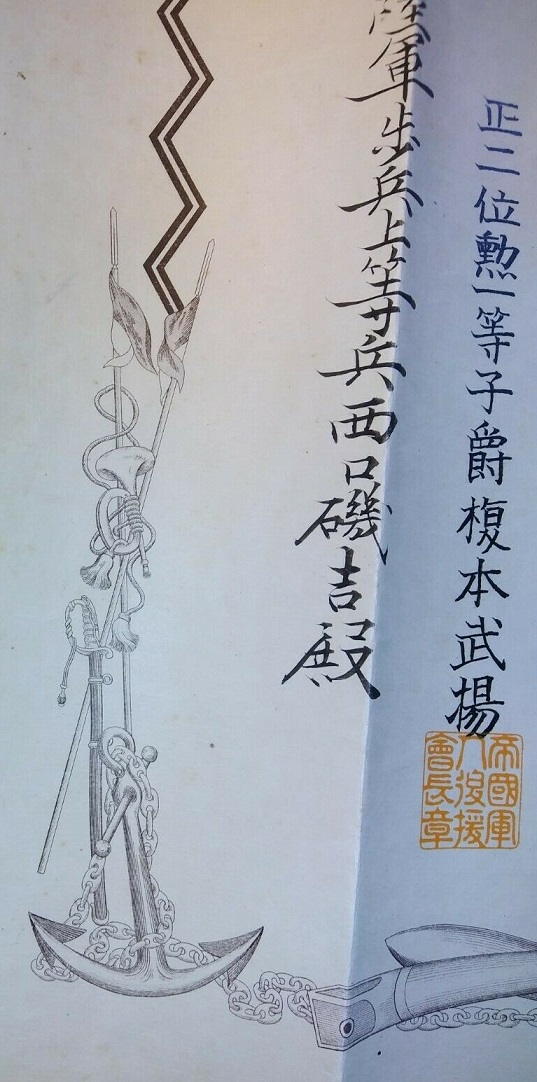 正二位勲一等子爵榎本武揚
帝國軍
人後援
會長章
陸軍歩兵上等兵西口磯吉殿